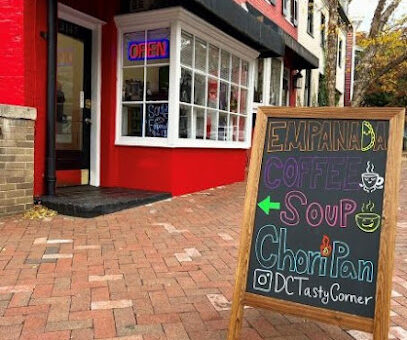 OPEN
EMPANADA
COFFEE
SOUP
ChoriPan
DCTastyCorner